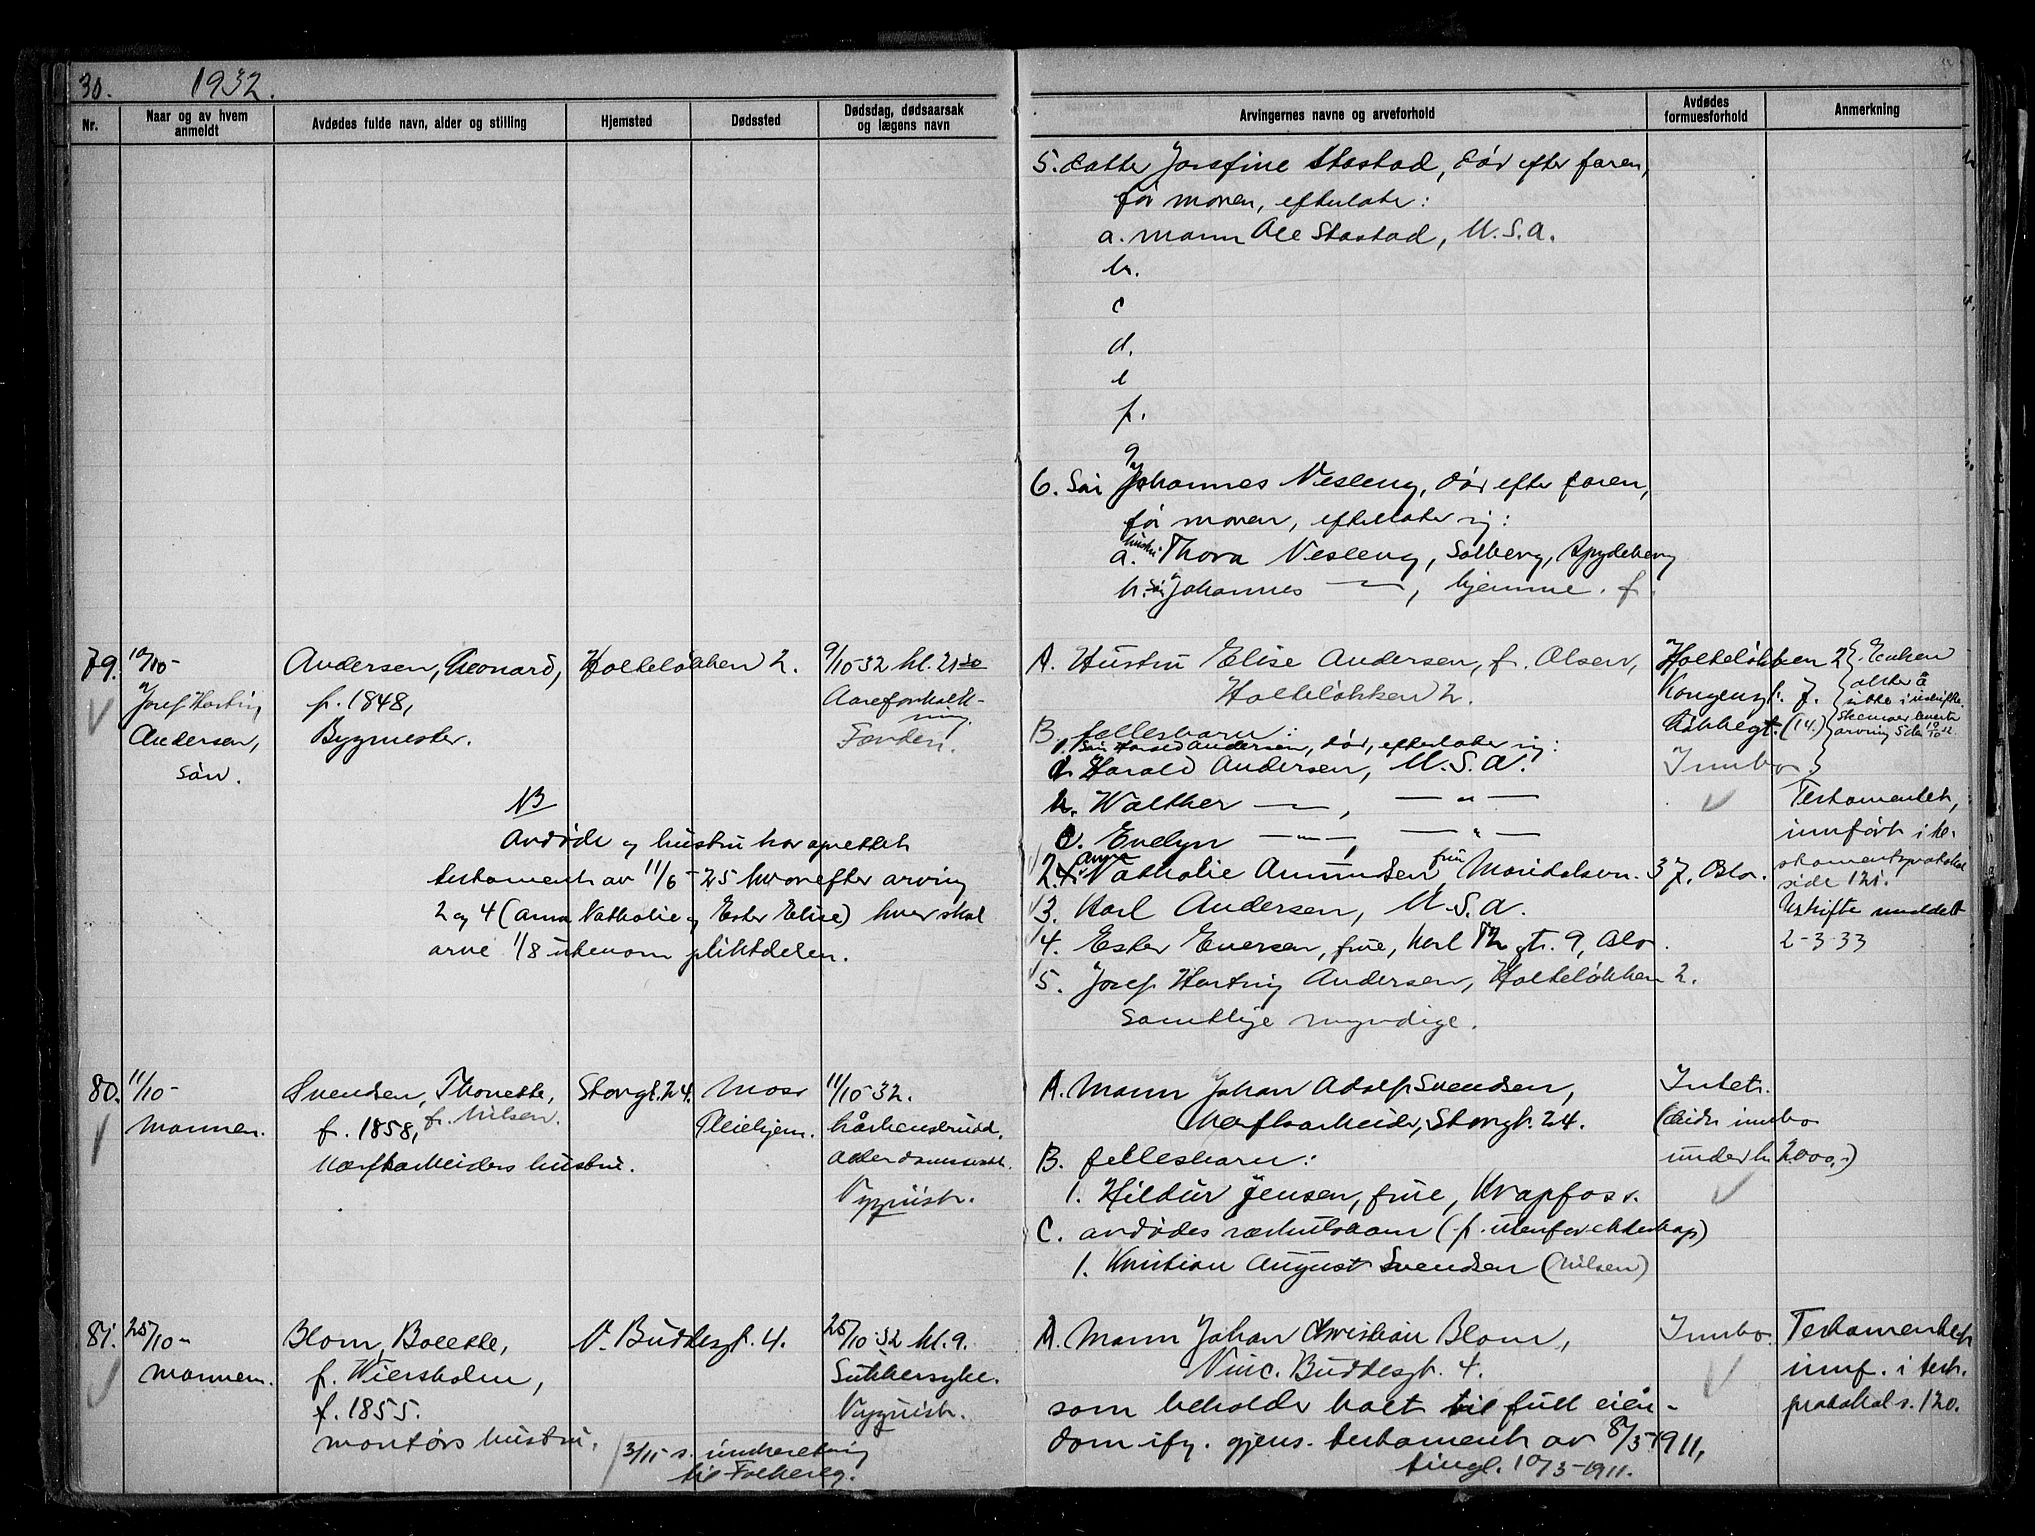 30. 1932.
Nr.
Naar og av hvem anmeldt
Avdødes fulde navn, alder og stilling
Hjemsted
Dødssted
Dødsdag, dødsaarsak og lægens navn
Arvingernes navne og arveforhold
Avdødes formuesforhold
Anmerkning
5. datter Josefine Stastad, død efter faren,
før moren, efterlater:
a. mann Ole Stastad, U.S.A.
b.
c
d.
e
f.
g
6. Søn Johannes Vesleng, død efter faren,
før moren, efterlater sig:
a. hustru Thora Vesleng, Solberg, Spydeberg
b. søn Johannes — , hjemme. f.
79.
10/10-
Josef Harting
Andersen,
søn.
Andersen, Leonard,
f. 1848,
Bygmester.
Holteløkken 2.
9/10 32 kl. 21 30
Aareforkalk-
ning.
Forden.
NB
Avdøde og hustru har oprettet
testament av 11/6-25 hvorefter arving
2 og 4 (Anna Nathalie og Ester Elise) hver skal
arve 1/8 utenom pliktdelen.
A. Hustru Elise Andersen, f. Olsen,
Holteløkken 2.
B. fellesbarn:
1. Søn Harald Andersen, død, efterlater sig:
a. Harald Andersen, U.S.A.
b. Walther — , — " —
c. Evelyn — " — , — " —
2. Anna Nathalie Amundsen, frue, Maridalsvn. 37, Oslo.
3. Karl Andersen, U.S.A.
4. Ester Eversen, frue, Karl Th gt. 9, Oslo.
5. Josef Harting Andersen, Holteløkken 2.
Samtlige myndige.
Holteløkken 2
Kongensgt. 7.
(14.)
Innbo
Enken
sitte i uskifte.
Testamentet,
innført i te-
stamentsprotokol
side 121.
Uskifte meddelt
2-3-33
80.
11/10-
Mannen.
Svendsen, Thonette,
f. 1858, f. Nilsen.
Værftsarbeiders hustru.
Storgt. 24.
Moss
Pleiehjem.
11/10-32.
Lårhensbrudd.
alderdomssvakh.
Nyquist.
A. Mann Johan Adolf Svendsen,
Værftsarbeider, Storgt. 24.
B. fellesbarn:
1. Hildur Jensen, frue, Krapfoss.
C. avdødes særkulsbarn (f. utenfor ekteskap)
1. Kristian August Svendsen (Nilsen)
Intet.
(Eide innbo
under kr. 2000,-)
81.
25/10-
Mannen.
Blom, Bolette,
f. Wiersholm,
f. 1855.
montørs hustru.
V. Buddesgt. 4.
25/10 32 kl. 9.
Sukkersyke.
Nyquist.
3/11 s. underretning
til Folkereg.
A. Mann Johan Christian Blom,
Vinc. Buddesgt. 4.
som beholder boet til full eien-
dom ifg. gjens. testament av 8/5-1911,
tingl. 10/5-1911.
Innbo
Testamentet
innf. i test.
protokol s. 120.